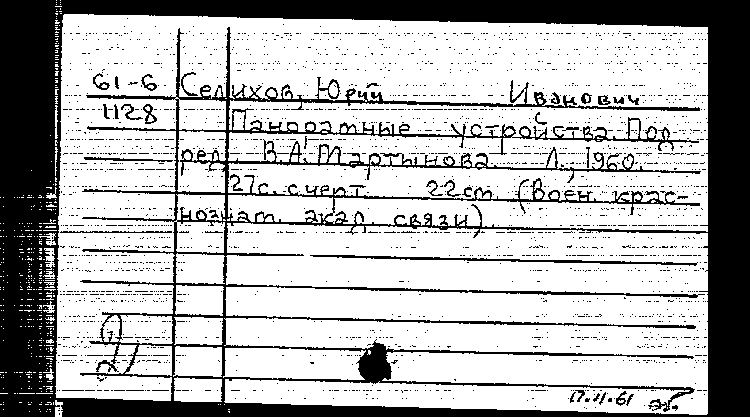 61-6 Селихов, Юрий Иванович
1128 Панорамные устройства. Под
ред. В.А. Мартынова. Л., 1960.
27с. с черт. 22см. (Воен. крас-
нознам. акад. связи).
17.II.61